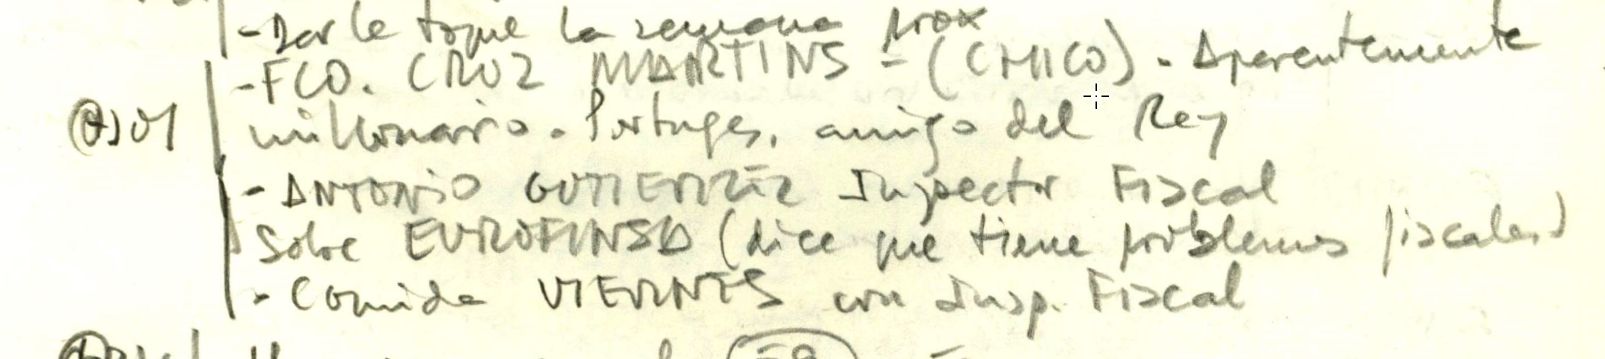 - Darle toque la semana prox
- FCO. CRUZ MARTINS - (CHICO) - Aparentemente
millonario - Portuges, amigo del Rey
- ANTONIO GUTIERREZ Inspector Fiscal
Sobre EUROFINSA (dice que tiene problemas fiscales)
- Comida VIERNES con Insp. Fiscal